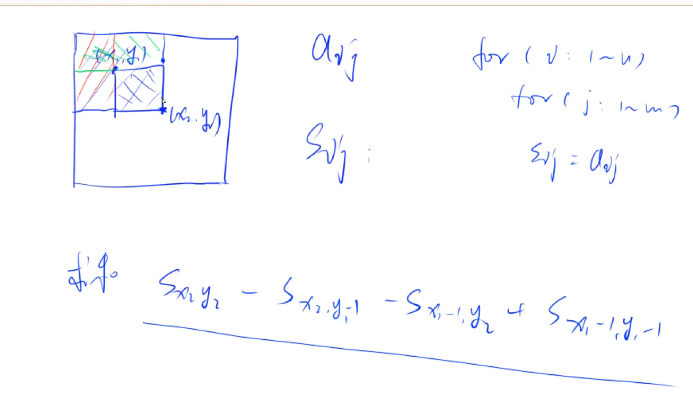 (x₁, y₁)
(x₂, y₂)
aij
for ( i : 1~n)
for ( j : 1~m)
Sij :
Sij = aij
Sx₂y₂ - Sx₂,y₁-1 - Sx₁-1,y₂ + Sx₁-1,y₁-1